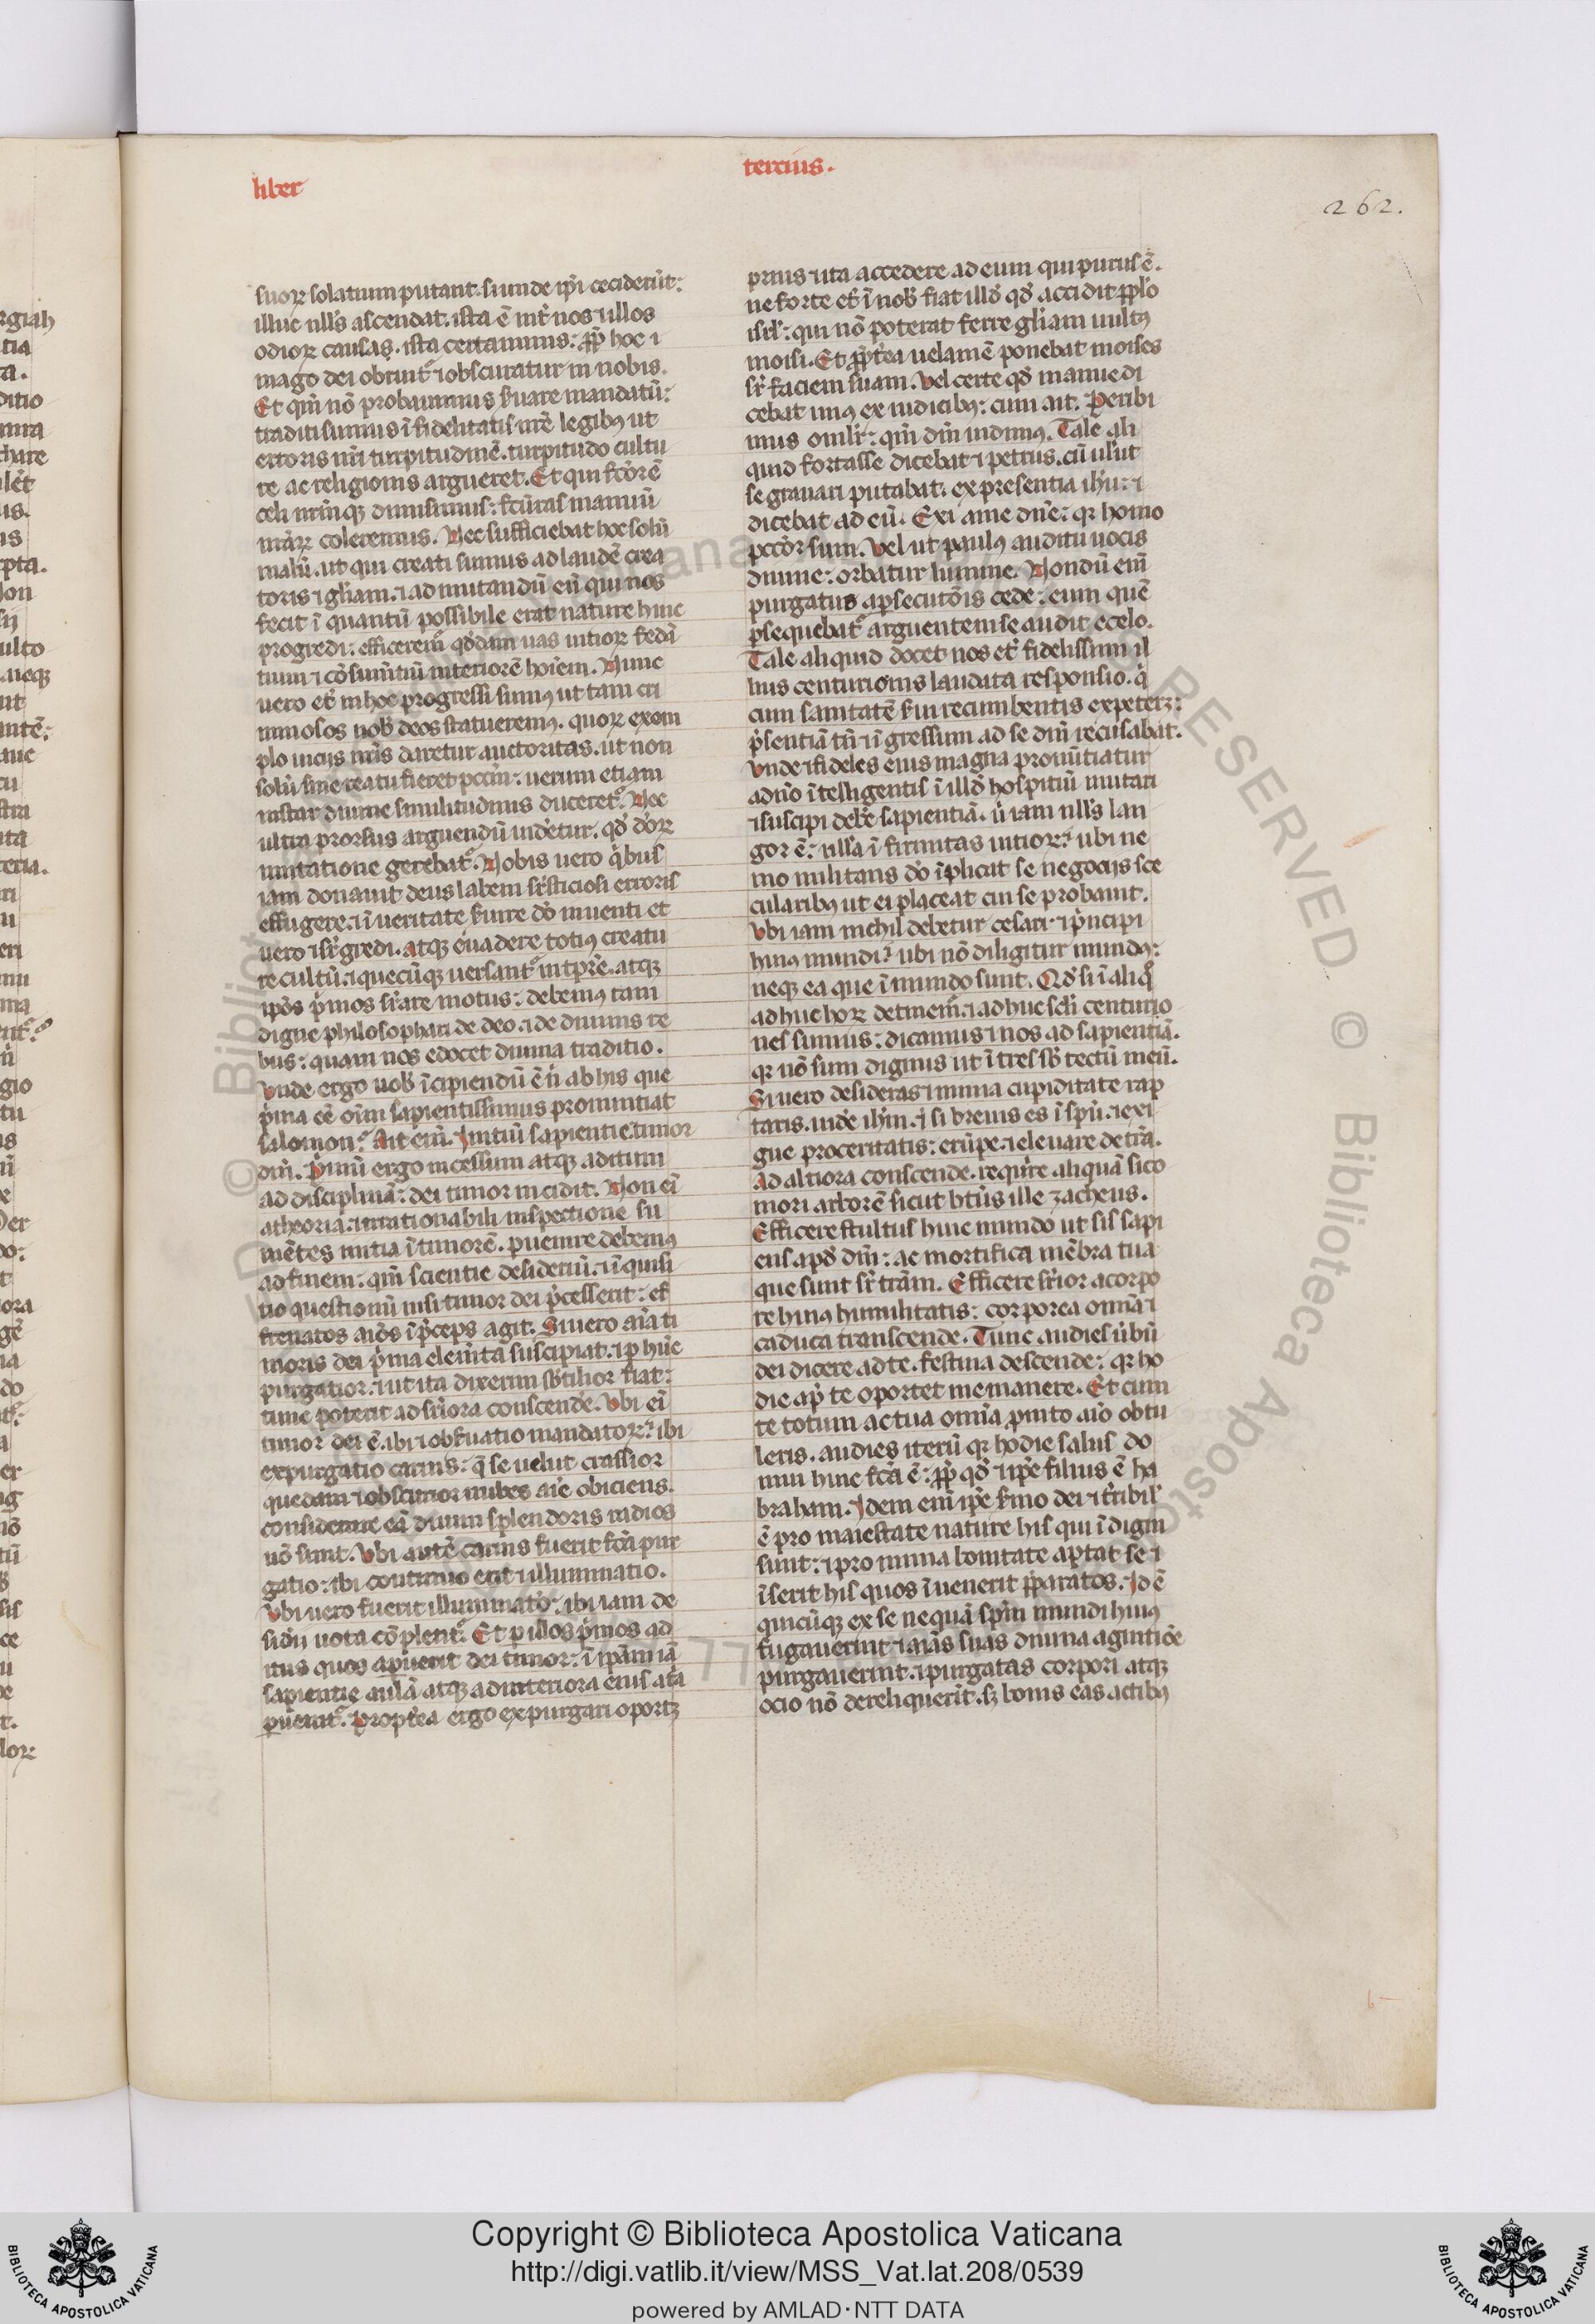 liber
tercius.
262.
suoꝝ solatium putant. si unde ip̅i ceciderūt:
illuc nll's ascendat. ista ē int̅ nos ⁊ illos
odioꝝ causas. ista certamina: ꝓp̅ hoc i
mago dei obruit᷑ ⁊ obscuratur in nobis.
Et qm̅ nō probauimus ẜuare mandatū:
traditi sumus ī fidelitatis nr̅e legibꝰ ut
erroris nr̅i turpitudinē. turpitudo cultu
re ac religionis argueret. Et qui fc̅orē
celi ut̅inqꝫ dimisimus: fc̅uras manuū
nr̅aꝝ coleremus. Nec sufficiebat hoc solū
malū. ut qui creati sumus ad laudē crea
toris ⁊ gl̅iam. ⁊ ad imitandū eū qui nos
fecit ī quantū possibile erat nature huic
progredi: efficerem̅ qd̅dam uas uitioꝝ
tuum ⁊ cōsumtiū interiorē hoīem. Nunc
uero et̅ in hoc progressi sumꝰ ut tam cri
minosos nob̅ deos statueremꝰ. quoꝝ exem
plo uicijs nr̅is daretur auctoritas. ut non
solū sine reatu fieret pcc̅m: uerum etiam
instar diuine similitudinis duceret᷑. Nec
ultra prorsus arguendū uidetur. qd̅ deoꝝ
imitatione gerebat᷑. Nobis uero q̅bus
iam donauit deus labem sr̅sticiosi erroris
effugere: ⁊ ī ueritate ẜuire dō inuenti et
uero ⁊ sr̅gredi. atqꝫ euadere totiꝰ creatu
re cultū. ⁊ quecūqꝫ uersant᷑ in tp̅re. atqꝫ
ip̅os p̅mos sr̅are motus: debemꝰ tam
digne philosophari de deo. ⁊ de diuinis re
bus: quam nos edocet diuina traditio.
Unde ergo nob̅ īcipiendū ē n̅ ab his que
p̅ma eē oīm sapientissimus pronuntiat
salomon? Ait em̅. Initiū sapientie: timor
dn̅i. P̅mū ergo incessum atqꝫ aditum
ad disciplinā: dei timor incidit. Non ei̅
a theoria: irrationabili inspectione su
mētes initia ī timorē. puenire debemꝰ
ad finem: qm̅ scientie desideriū. ⁊ ī quisi
tio questionū nisi timor dei p̅cesserit: ef
frenatos aīos ī p̅ceps agit. Si uero aīa ti
moris dei p̅ma elem̅ta suscipiat. ⁊ p hūc
purgatior. ⁊ ut ita dixerim sb̅tilior fiat:
tunc poterit ad sr̅iora conscende. Ubi ei̅
timor dei ē. ibi ⁊ obẜuatio mandatoꝝ: ⁊ ibi
expurgatio carnis: q̅ se uelut crassior
quedam ⁊ obscurior nubes aīe obiciens.
considerare eā diuini splendoris radios
nō sinit. Ubi autē carnis fuerit fc̅a pur
gatio: ibi continuo erit ⁊ illuminatio.
Ubi uero fuerit illuminatō: ibi iam de
siderij uota cōplent᷑. Et p illos p̅mos ad
itus quos apuerit dei timor: ī ip̅am iā
sapientie aulā atqꝫ ad interiora eius atria
puenit᷑. Propterea ergo expurgari oportꝫ
prius ⁊ ita accedere ad eum qui purus ē.
ne forte et̅ ī nob̅ fiat illd̅ qd̅ accidit ppl̅o
isrl̅: qui nō poterat ferre gl̅iam uultꝰ
moisi. Et ꝓpt̅ea uelamē ponebat moises
sr̅ faciem suam. Vel certe qd̅ manue di
cebat unꝰ ex iudicibꝰ: cum ait. Peribi
mus oml̅r: qm̅ dm̅ uidimꝰ. Tale ali
quid fortasse dicebat ⁊ petrus. cū uel̅ut
se grauari putabat. ex presentia ih̅u: ⁊
dicebat ad eū. Exi a me dn̅e: qꝛ homo
pccōr sum. Vel ut paulꝰ auditu uocis
diuine: orbatur lumine. Nondū em̅
purgatus a psecutōis cede: eum quē
psequebat᷑ arguentem se audit e celo.
Tale aliquid docet nos et̅ fidelissimi il
lius centurionis laudata responsio. q̅
cum sanitatē ẜui recumbentis expeterꝫ:
p̅sentiā tn̅ ⁊ īgressum ad se dn̅i recusabat.
Unde ⁊ fideles eius magna pronūtiatur
a dn̅o ītelligentis ī illd̅ hospitiū inuitari
⁊ suscipi debe̅ sapientiā. u̅ iam null's lan
gor ē: nulla ī firmitas uitioꝝ: ⁊ ubi ne
mo militans dō īplicat se negocijs sce
cularibꝰ ut ei placeat cui se probauit.
Ubi iam nichil debetur cesari: ⁊ p̅ncipi
huiꝰ mundi: ⁊ ubi nō diligitur mundꝰ:
neqꝫ ea que ī mundo sunt. Qd̅ si ī aliq̅
adhuc hoꝝ detinem̅: ⁊ adhuc scl̅i centurio
nes sumus: dicamus ⁊ nos ad sapientiā.
qꝛ nō sum dignus ut ītres sb̅ tectū meū.
Si uero desideras ⁊ nimia cupiditate rap
taris. uide ih̅m. ⁊ si breuis es ī sp̅u. ⁊ exi
gue proceritatis: erūpe. ⁊ eleuare de t̅ra.
Ad altiora conscende. requi̅re aliquā sico
mori arborē sicut bt̅us ille zacheus.
Efficere stultus huic mundo ut sis sapi
ens apd̅ dm̅: ac mortifica mēbra tua
que sunt sr̅ tr̅am. Efficere sr̅ior a corpo
re huiꝰ humilitatis: corporea omīa ⁊
caduca transcende. Tunc audies ūbū
dei dicere ad te. festina descende: qꝛ ho
die ap̅ te oportet me manere. Et cum
te totum ac tua omīa pmto aīo obtu
leris. audies iterū qꝛ hodie salus do
mui huic fc̅a ē: ꝓp̅ qd̅ ⁊ ip̅e filius ē ha
braham. Idem em̅ ip̅e ẜmo dei ⁊ t̅ribil'
ē pro maiestate nature his qui ī digni
sunt: ⁊ pro nimia bonitate aptat se ⁊
īserit his quos īuenerit p̅paratos. Id ē
quicūqꝫ ex se nequā sp̅m mundi huiꝰ
fugauerint ⁊ aīas suas diuina agnitiōe
purgauerint. ⁊ purgatas corpori atqꝫ
ocio nō derelinquerit. sꝫ bonis eas actibꝰ
Copyright © Biblioteca Apostolica Vaticana
http://digi.vatlib.it/view/MSS_Vat.lat.208/0539
powered by AMLAD·NTT DATA
BIBLIOTECA APOSTOLICA VATICANA
BIBLIOTECA APOSTOLICA VATICANA